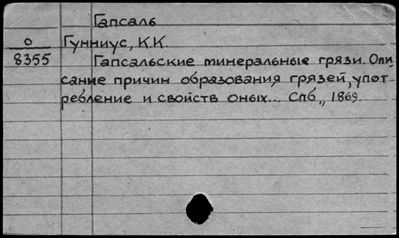 Гапсаль
О Гунниус, К.К.
8355 Гапсальские минеральные грязи. Опи
сание причин образования грязей, упот
ребление и свойств оных... Спб., 1869.